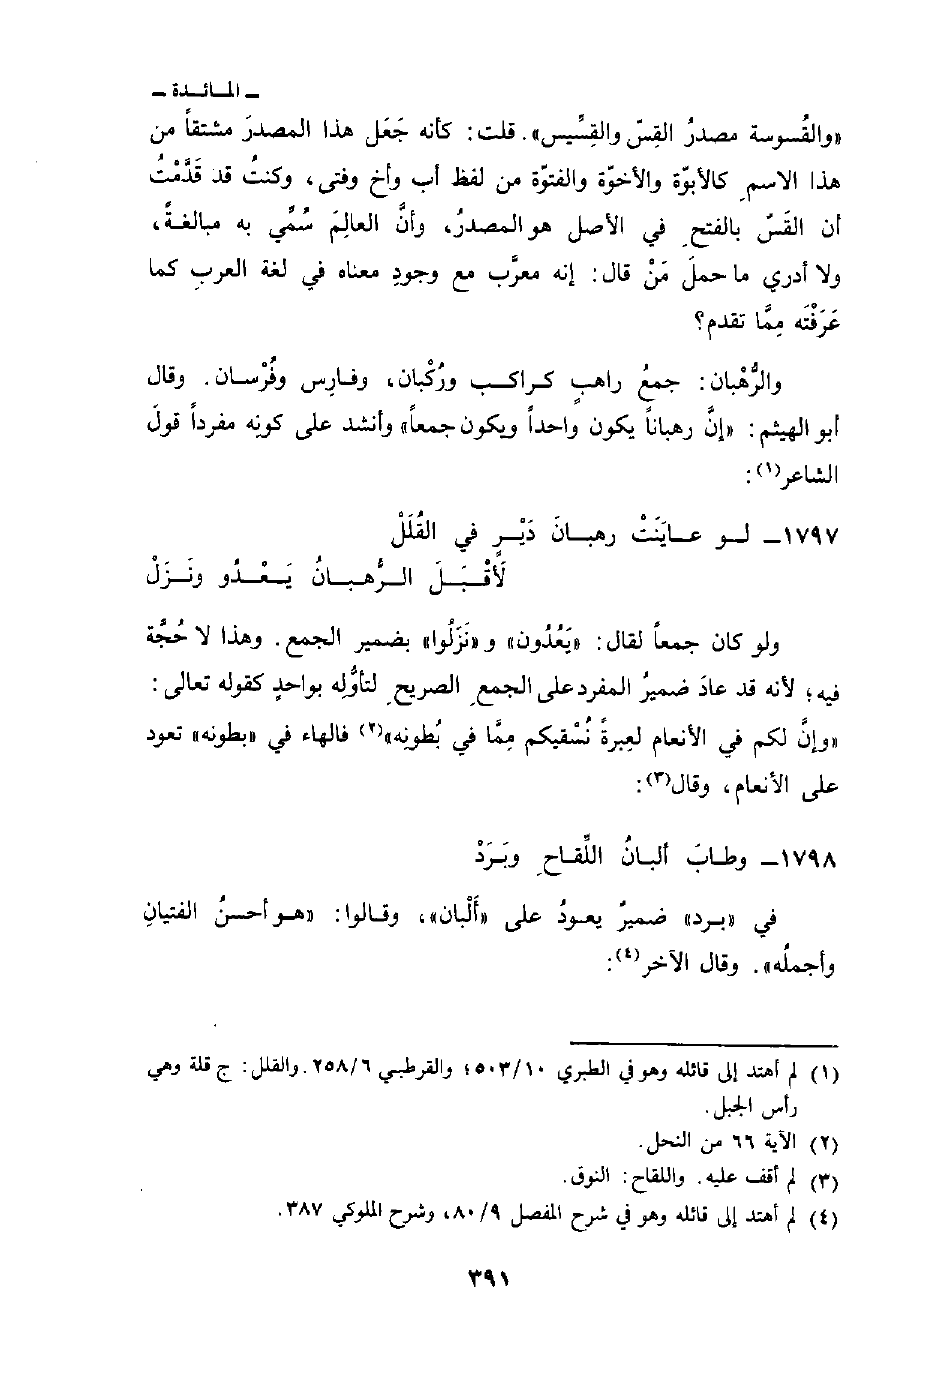 ـ المـائـدة ـ
«والقُسوسة مصدرُ القِسّ والقِسِّيس». قلت: كأنه جَعَل هذا المصدرَ مشتقاً من
هذا الاسمِ كالأبوّة والأخوّة والفتوّة من لفظ أب وأخ وفتى، وكنتُ قد قَدَّمْتُ
أن القَسّ بالفتحِ في الأصل هو المصدرُ، وأنَّ العالِمَ سُمِّي به مبالغةً،
ولا أدري ما حملَ مَنْ قال: إنه معرَّب مع وجودِ معناه في لغة العربِ كما
عَرَفْتَه مِمَّا تقدم؟
والرُّهْبان: جمعُ راهبٍ كـراكـب ورُكْبان، وفـارِس وفُرْسـان. وقال
أبو الهيثم: «إنَّ رهباناً يكون واحداً ويكون جمعاً» وأنشد على كونِه مفرداً قولَ
الشاعر(١):
١٧٩٧ـ لـو عـايَنَتْ رهبـانَ دَيْـرٍ في القُلَلْ
لَأَقْبَـلَ الـرُّهْبـانُ يَـعْـدُو ونَـزَلْ
ولو كان جمعاً لقال: «يَعْدُون» و «نَزَلُوا» بضمير الجمع. وهذا لا حُجَّة
فيه؛ لأنه قد عادَ ضميرُ المفرد على الجمعِ الصريحِ لتأوُّلِه بواحدٍ كقوله تعالى:
«وإنَّ لكم في الأنعام لَعِبرةً نُسْقيكم مِمَّا في بُطونِه»(٢) فالهاء في «بطونه» تعود
على الأنعام، وقال(٣):
١٧٩٨ـ وطـابَ ألبـانُ اللِّقـاحِ وبَـرَدْ
في «بـرد» ضميرٌ يعـودُ على «أَلْبان»، وقـالوا: «هـو أحسـنُ الفتيانِ
وأجملُه». وقال الآخر(٤):
(١) لم أهتد إلى قائله وهو في الطبري ١٠/ ٥٠٣؛ والقرطبي ٦/ ٢٥٨. والقلل: ج قلة وهي
رأس الجبل.
(٢) الآية ٦٦ من النحل.
(٣) لم أقف عليه. واللقاح: النوق.
(٤) لم أهتد إلى قائله وهو في شرح المفصل ٩/ ٨٠، وشرح الملوكي ٣٨٧.
٣٩١